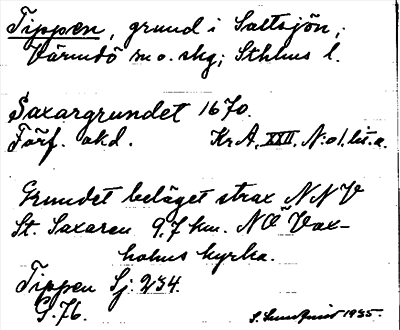 Tippen, grund i Saltsjön,
Värmdö m.o. skg; Sthlms l.
Saxargrundet 1670.
Förf. okd. Kr.A. XXII. N:o 1. lit. a.
Grundet beläget strax NNV
St. Saxaren 9,7 km. NÖ Vax-
holms kyrka.
Tippen Sj: 234.
G. 76.
S. 1935.